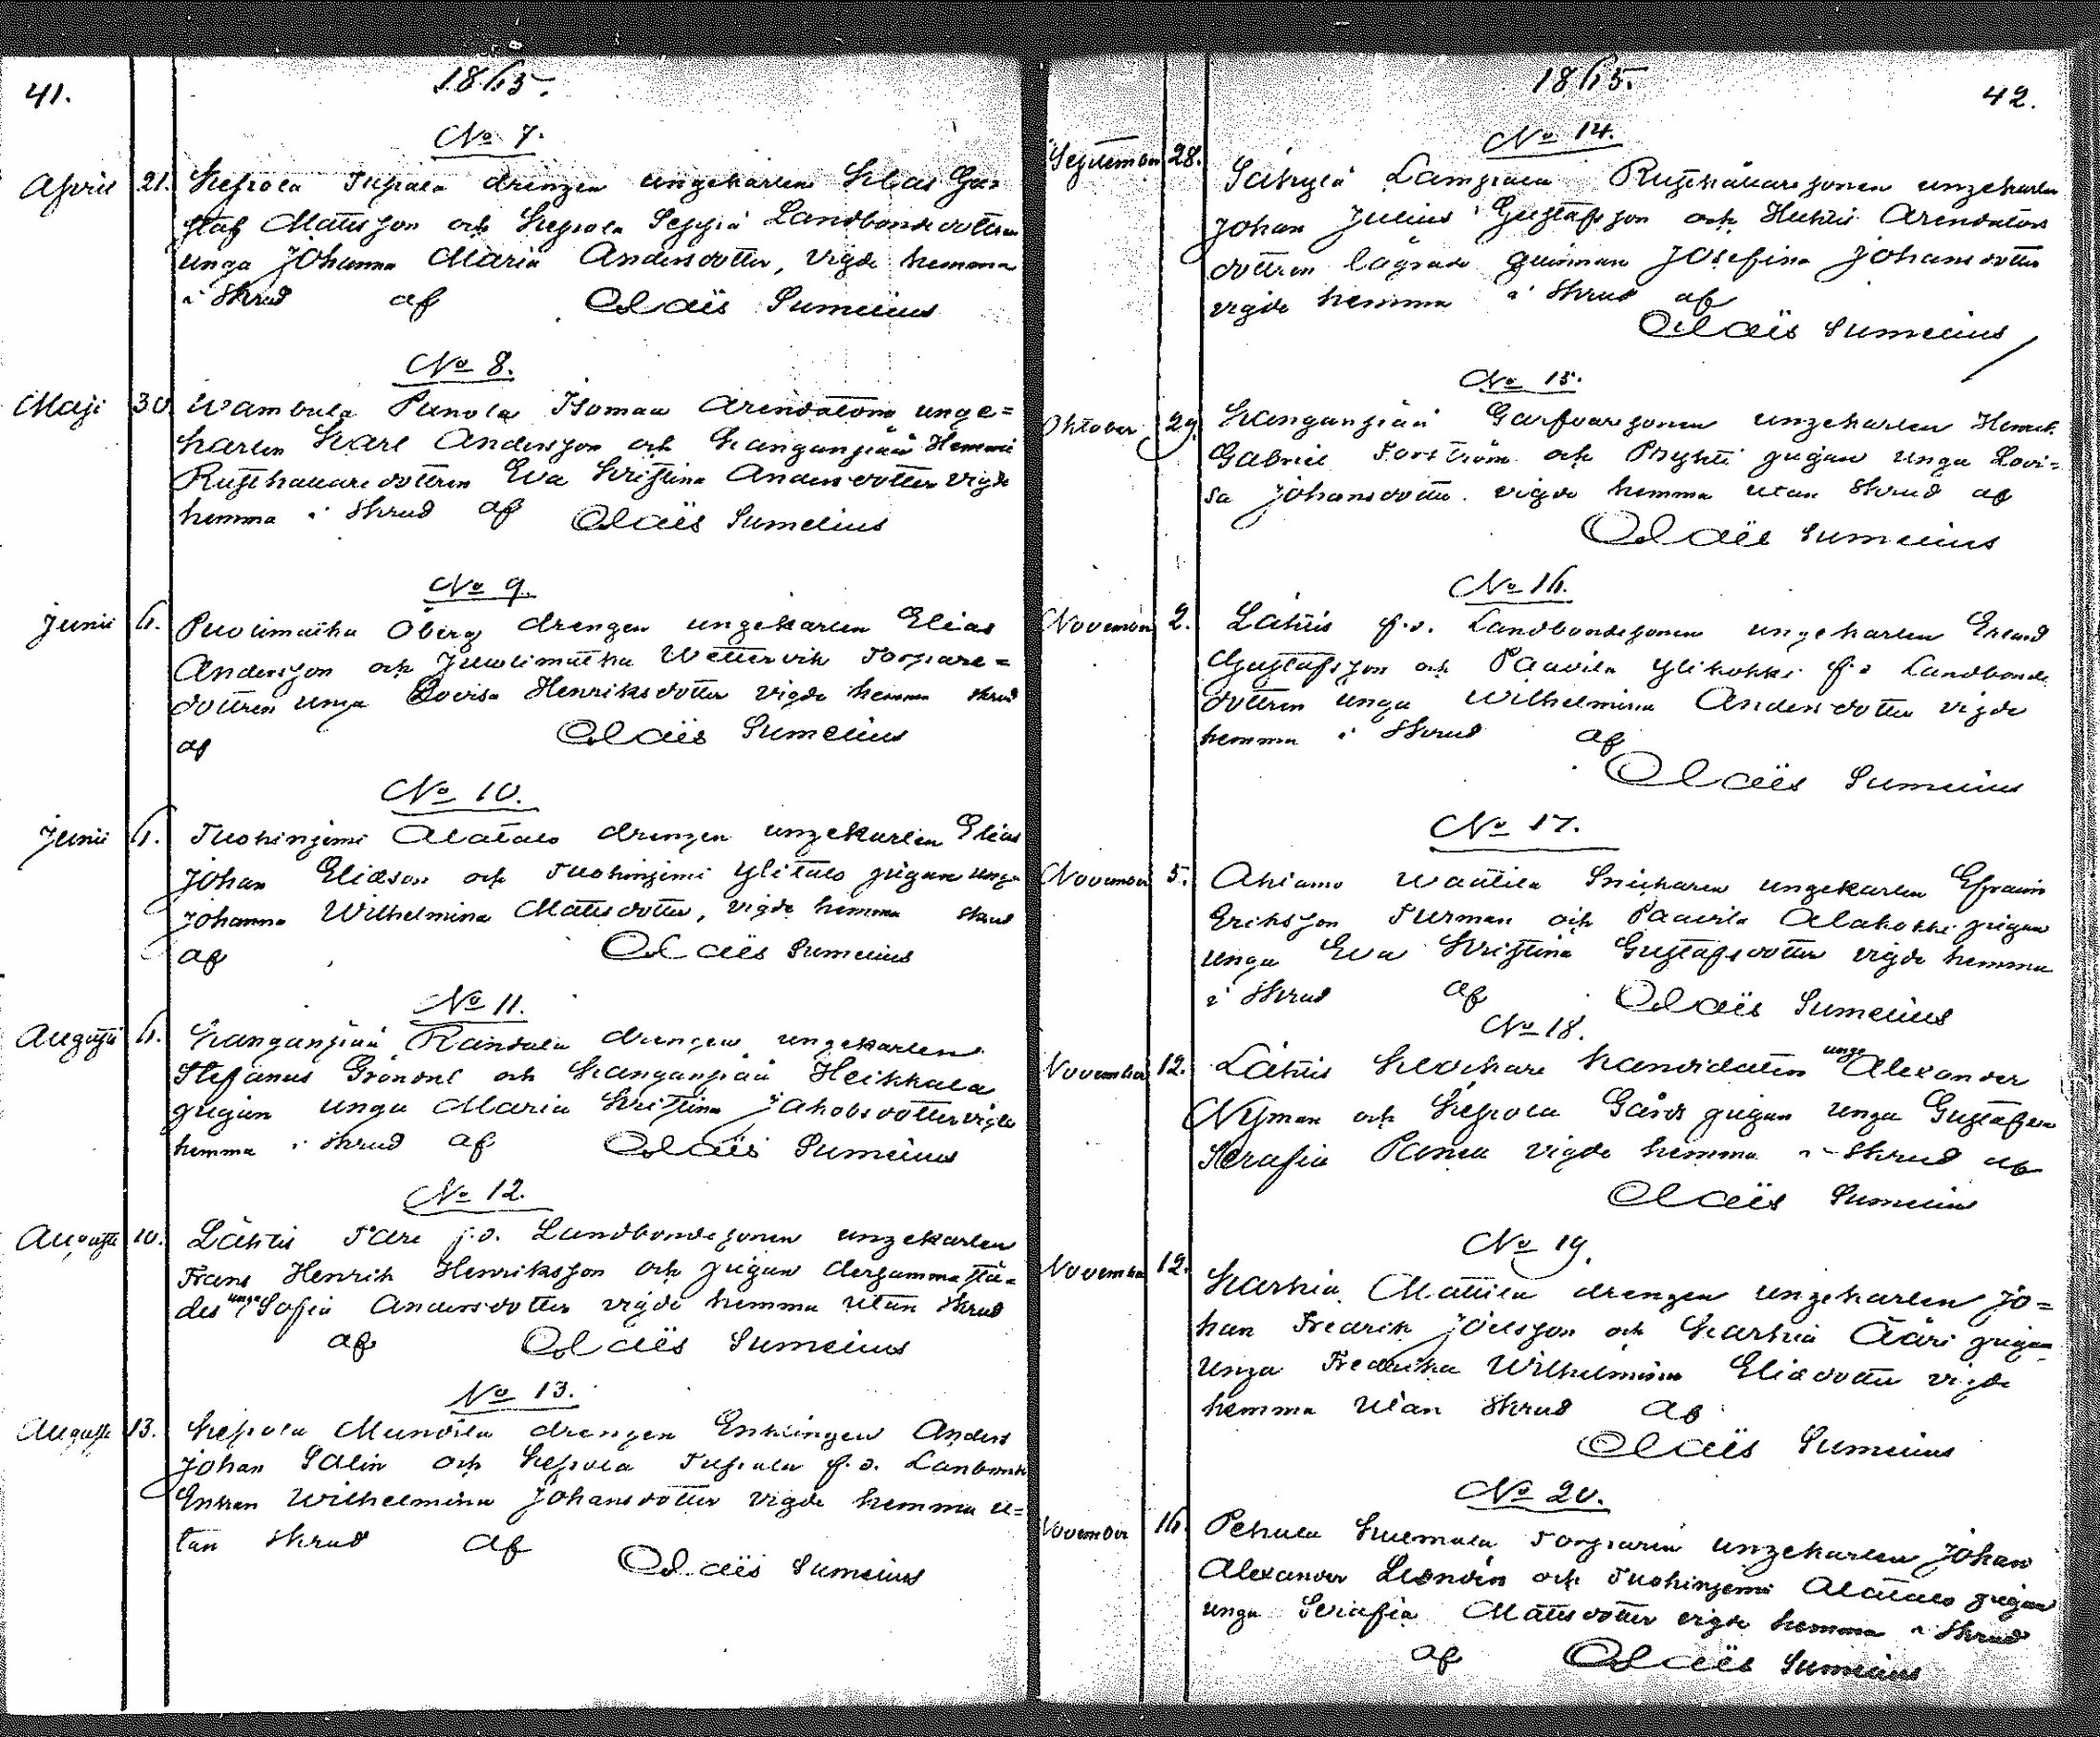 41.
1865.
No 7.
April 21. Kepola Tupala drengen ungekarlen Klas Gu=
staf Matsson och Kepola Seppä Landbondedottren
unga Johanna Maria Andersdotter, vigde hemma
i skrud af Claës Sumelius
No 8.
Maji 30 Wambula Punola Isomaa Arendatorn unge=
karlen Karl Andersson och Kanganpää Hemmi
Rusthållaredottren Eva Kristina Andersdotter vigde
hemma i skrud af Claës Sumelius
No 9.
Junii 6. Puolimatka Öberg drengen ungekarlen Elias
Andersson och Puolimatka Wettervik Torpare=
dottren unga Lovisa Henriksdotter vigde hemma skrud
af Claës Sumelius
No 10.
Junii 6. Tuohiniemi Alatalo drengen ungekarlen Elias
Johan Eliasson och Tuohiniemi Ylitalo pigan unga
Johanna Wilhelmina Matsdotter, vigde hemma skrud
af Claës Sumelius
No 11.
Augusti 6. Kanganpää Rantala drengen ungekarlen
Stefanus Gröndal och Kanganpää Heikkala
pigan unga Maria Kristina Jakobsdotter vigde
hemma i skrud af Claës Sumelius
No 12.
Augusti 10. Lähtis Tåre f.d. Landbondesonen ungekarlen
Frans Henrik Henriksson och pigan dersammastä=
des unga Sofia Andersdotter vigde hemma utan skrud
af Claës Sumelius
No 13.
Augusti 13. Kepola Mundila drengen Enklingen Anders
Johan Salin och Kepola Tupala f.d. Lanbonde
Enkan Wilhelmina Johansdotter vigde hemma u=
tan skrud af Claës Sumelius
1865.
42.
No 14.
September 28. Säkylä Lampola Rusthållaresonen ungekarlen
Johan Julius Gustafsson och Huhtis Arendators
dottren lägrade qvinnan Josefina Johansdotter
vigde hemma i skrud af
Claës Sumelius
No 15.
Oktober 29. Kanganpää Garfvaresonen ungekarlen Henrik
Gabriel Forström och Plighti pigan unga Lovi=
sa Johansdotter vigde hemma utan skrud af
Claës Sumelius
No 16.
November 2. Lähtis f.d. Landbondesonen ungekarlen Erland
Gustafsson och Paavila Ylikokki f.d. Landbonde
dottren unga Wilhelmina Andersdotter vigde
hemma i skrud af
Claës Sumelius
No 17.
November 5. Ahlamo Waatila Snickaren ungekarlen Efraim
Eriksson Turman och Paavila Alakokki pigan
unga Eva Kristina Gustafsdotter vigde hemma
i skrud af Claës Sumelius
No 18.
November 12. Lähtis Klockare Kandidaten unge Alexander
Nyman och Kepola Gårds pigan unga Gustafva
Serafia vigde hemma i skrud af
Claës Sumelius
No 19.
November 12. Karhia Mattila drengen ungekarlen Jo=
han Fredrik Joelsson och Karhia Ääri pigan
unga Fredrika Wilhelmina Eliædotter vigde
hemma utan skrud af
Claës Sumelius
No 20.
November 16. Pehula Kulmala Torparen ungekarlen Johan
Alexander Leonvin och Tuohiniemi Alatalo pigan
unga Serafia Matsdotter vigde hemma i skrud
af Claës Sumelius